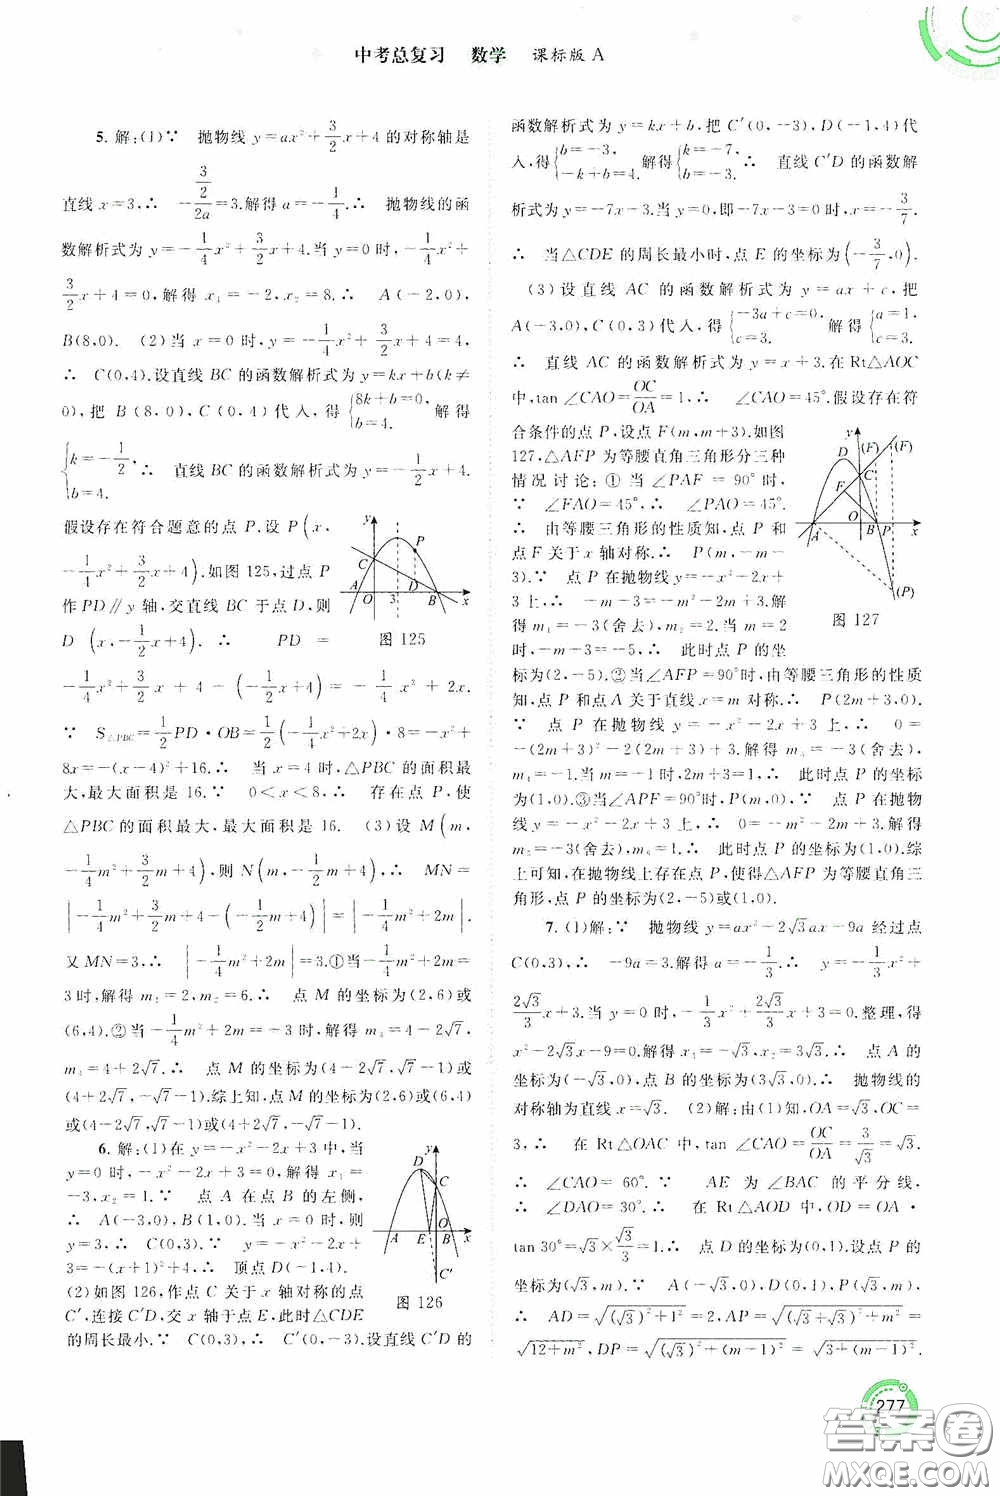 中考总复习 数学 课标版 A
5. 解:(1)∵ 抛物线 y=ax²+3/2x+4 的对称轴是
直线 x=3,∴ -(3/2)/(2a)=3.解得 a=-1/4.∴ 抛物线的函
数解析式为 y=-1/4x²+3/2x+4.当 y=0 时,-1/4x²+
3/2x+4=0,解得 x₁=-2,x₂=8.∴ A(-2,0),
B(8,0). (2)当 x=0 时,y=-1/4x²+3/2x+4=4,
∴ C(0,4).设直线 BC 的函数解析式为 y=kx+b(k≠
0),把 B(8,0),C(0,4)代入,得{8k+b=0, b=4. 解得
{k=-1/2, b=4. ∴ 直线 BC 的函数解析式为 y=-1/2x+4.
假设存在符合题意的点 P.设 P(x,
-1/4x²+3/2x+4).如图 125,过点 P
作 PD∥y 轴,交直线 BC 于点 D,则
D(x,-1/2x+4).∴ PD=
y C P D A O 3 B x
图 125
-1/4x²+3/2x+4-(-1/2x+4)=-1/4x²+2x.
∵ S△PBC=1/2PD·OB=1/2(-1/4x²+2x)·8=-x²+
8x=-(x-4)²+16.∴ 当 x=4 时,△PBC 的面积最
大,最大面积是 16.∵ 0<x<8,∴ 存在点 P,使
△PBC 的面积最大,最大面积是 16. (3)设 M(m,
-1/4m²+3/2m+4),则 N(m,-1/2m+4).∴ MN=
|-1/4m²+3/2m+4-(-1/2m+4)|=|-1/4m²+2m|.
又 MN=3,∴ |-1/4m²+2m|=3.①当-1/4m²+2m=
3 时,解得 m₁=2,m₂=6.∴ 点 M 的坐标为(2,6)或
(6,4).②当-1/4m²+2m=-3 时,解得 m₃=4-2√7,
m₄=4+2√7.∴ 点 M 的坐标为(4-2√7,√7-1)或
(4+2√7,-√7-1).综上知,点 M 的坐标为(2,6)或(6,4)
或(4-2√7,√7-1)或(4+2√7,-√7-1).
6. 解:(1)在 y=-x²-2x+3 中,当
y=0 时,-x²-2x+3=0,解得 x₁=
-3,x₂=1.∵ 点 A 在点 B 的左侧,
∴ A(-3,0),B(1,0).当 x=0 时,
y=3,∴ C(0,3).∵ y=-x²-2x+3=
-(x+1)²+4,∴ 顶点 D(-1,4).
(2)如图 126,作点 C 关于 x 轴对称的点
C′,连接 C′D,交 x 轴于点 E,此时△CDE
的周长最小.∵ C(0,3),∴ C′(0,-3).设直线 C′D 的
D y C A E O B x C′
图 126
函数解析式为 y=kx+b,把 C′(0,-3),D(-1,4)代
入,得{b=-3, -k+b=4. 解得{k=-7, b=-3. ∴ 直线 C′D 的函数解
析式为 y=-7x-3.当 y=0,即-7x-3=0 时,x=-3/7.
∴ 当△CDE 的周长最小时,点 E 的坐标为(-3/7,0).
(3)设直线 AC 的函数解析式为 y=ax+c,把
A(-3,0),C(0,3)代入,得{-3a+c=0, c=3. 解得{a=1, c=3.
∴ 直线 AC 的函数解析式为 y=x+3.在 Rt△AOC
中,tan ∠CAO=OC/OA=1,∴ ∠CAO=45°.假设存在符
合条件的点 P,设点 F(m,m+3).如图
127,△AFP 为等腰直角三角形分三种
情况讨论:①当∠PAF=90°时,
∵ ∠FAO=45°,∴ ∠PAO=45°.
∴ 由等腰三角形的性质知,点 P 和
点 F 关于 x 轴对称.∴ P(m,-m-
3).∵ 点 P 在抛物线 y=-x²-2x+
3 上,∴ -m-3=-m²-2m+3.解
得 m₁=-3(舍去),m₂=2.当 m=2
时,-m-3=-5,∴ 此时点 P 的坐
y (F) (F) D C F A O B P x (P)
图 127
标为(2,-5).②当∠AFP=90°时,由等腰三角形的性质
知,点 P 和点 A 关于直线 x=m 对称.∴ P(2m+3,0).
∵ 点 P 在抛物线 y=-x²-2x+3 上,∴ 0=
-(2m+3)²-2(2m+3)+3.解得 m₃=-3(舍去),
m₄=-1.当 m=-1 时,2m+3=1,∴ 此时点 P 的坐标
为(1,0).③当∠APF=90°时,P(m,0).∵ 点 P 在抛物
线 y=-x²-2x+3 上,∴ 0=-m²-2m+3.解得
m₅=-3(舍去),m₆=1.∴ 此时点 P 的坐标为(1,0).综
上可知,在抛物线上存在点 P,使得△AFP 为等腰直角三
角形,点 P 的坐标为(2,-5)或(1,0).
7. (1)解:∵ 抛物线 y=ax²-2√3ax-9a 经过点
C(0,3),∴ -9a=3.解得 a=-1/3.∴ y=-1/3x²+
2√3/3x+3.当 y=0 时,-1/3x²+2√3/3x+3=0.整理,得
x²-2√3x-9=0.解得 x₁=-√3,x₂=3√3.∴ 点 A 的
坐标为(-√3,0),点 B 的坐标为(3√3,0).∴ 抛物线的
对称轴为直线 x=√3. (2)解:由(1)知,OA=√3,OC=
3,∴ 在 Rt△OAC 中,tan ∠CAO=OC/OA=3/√3=√3.
∴ ∠CAO=60°.∵ AE 为∠BAC 的平分线,
∴ ∠DAO=30°.∴ 在 Rt△AOD 中,OD=OA·
tan 30°=√3×√3/3=1.∴ 点 D 的坐标为(0,1).设点 P 的
坐标为(√3,m).∵ A(-√3,0),D(0,1),P(√3,m),
∴ AD=√((√3)²+1²)=2,AP=√((√3+√3)²+m²)=
√(12+m²),DP=√((√3)²+(m-1)²)=√(3+(m-1)²).
277
答案圈
MXQE.COM